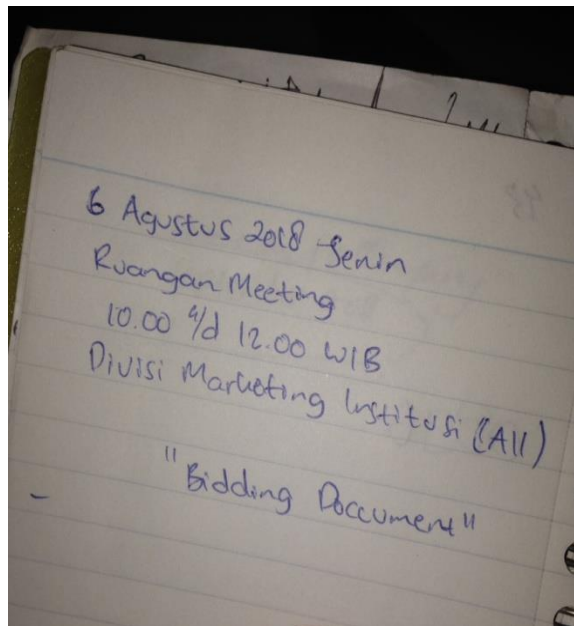 6 Agustus 2018 Senin
Ruangan Meeting
10.00 s/d 12.00 WIB
Divisi Marketing Institusi (All)
"Bidding Doccument"
-